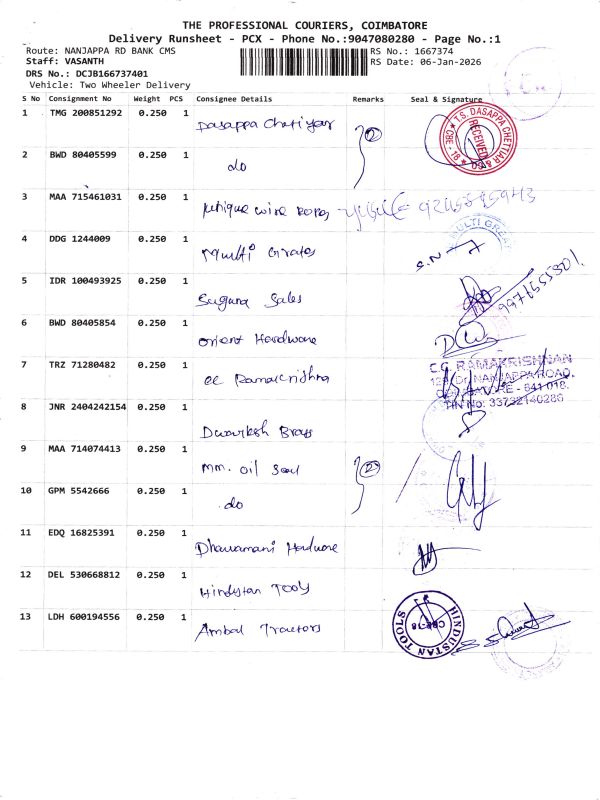 THE PROFESSIONAL COURIERS, COIMBATORE
Delivery Runsheet - PCX - Phone No.:9047080280 - Page No.:1
Route: NANJAPPA RD BANK CMS
RS No.: 1667374
Staff: VASANTH
RS Date: 06-Jan-2026
DRS No.: DCJB166737401
Vehicle: Two Wheeler Delivery
S No Consignment No Weight PCS Consignee Details Remarks Seal & Signature
1 TMG 200851292 0.250 1 Dasappa Chetiyar 2
T.S. DASAPPA CHETTIAR & CO RECEIVED CBE - 18
2 BWD 80405599 0.250 1 do
3 MAA 715461031 0.250 1 unique wire ropes
4 DDG 1244009 0.250 1 Multi Grates
MULTI GREAT
S.N
5 IDR 100493925 0.250 1 Suguna Sales
6 BWD 80405854 0.250 1 Orient Hardware
7 TRZ 71280482 0.250 1 CC Ramakrishna
C.G. RAMAKRISHNAN
NANJAPPA ROAD,
COIMBATORE - 641 018.
TIN No: 33732140286
8 JNR 2404242154 0.250 1 Dwarkesh Brass
9 MAA 714074413 0.250 1 mm. oil Seal 2
10 GPM 5542666 0.250 1 do
11 EDQ 16825391 0.250 1 Dhanamani Hardware
12 DEL 530668812 0.250 1 Hindustan Tools
13 LDH 600194556 0.250 1 Ambal Tractors
HINDUSTAN TOOLS CBE-18